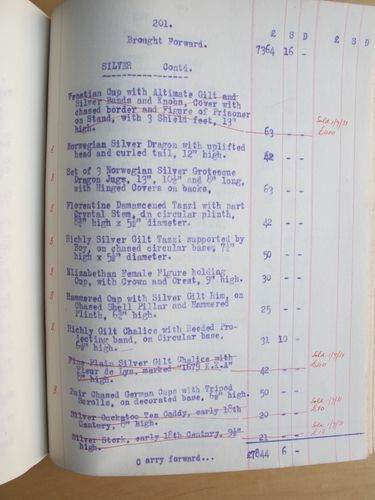 201.
£ S D £ S D
Brought Forward. 7364 16 -
SILVER Contd.
Venetian Cup with Altimate Gilt and
Silver Bands and Knobs, Cover with
chased border and Figure of Prisoner
on Stand, with 3 Shield feet, 13"
high. 63 - -
Sold 1/9/31
£100
Norwegian Silver Dragon with uplifted
head and curled tail, 12" high. 42 - -
Set of 3 Norwegian Silver Grotesque
Dragon Jugs, 13", 10½" and 8" long,
with Hinged Covers on backs, 63 - -
Florentine Damascened Tazzi with part
Crystal Stem, on circular plinth,
high x 5½" diameter. 42 - -
Richly Silver Gilt Tazzi supported by
Boy, on chased circular base, 7½"
high x 5½" diameter. 50 - -
Elizabethan Female Figure holding
Cup, with Crown and Crest, 9" high. 30 - -
Hammered Cup with Silver Gilt Rim, on
Chased Shell Pillar and Hammered
Plinth, high. 25 - -
Richly Gilt Chalice with Reeded Pro-
jecting band, on Circular base,
high. 31 10 -
Fine Plain Silver Gilt Chalice with
Fleur de Lys, marked "1679 E.K.A"
high. 42 - -
Sold
Pair Chased German Cups with Tripod
Scrolls, on decorated base, high. 50 - -
Silver Cockatoo Tea Caddy, early 18th
Century, 6" high. 20 - -
Sold
Silver Stork, early 18th Century,
high. 21 - -
Sold
Carry forward... £7844 6 -